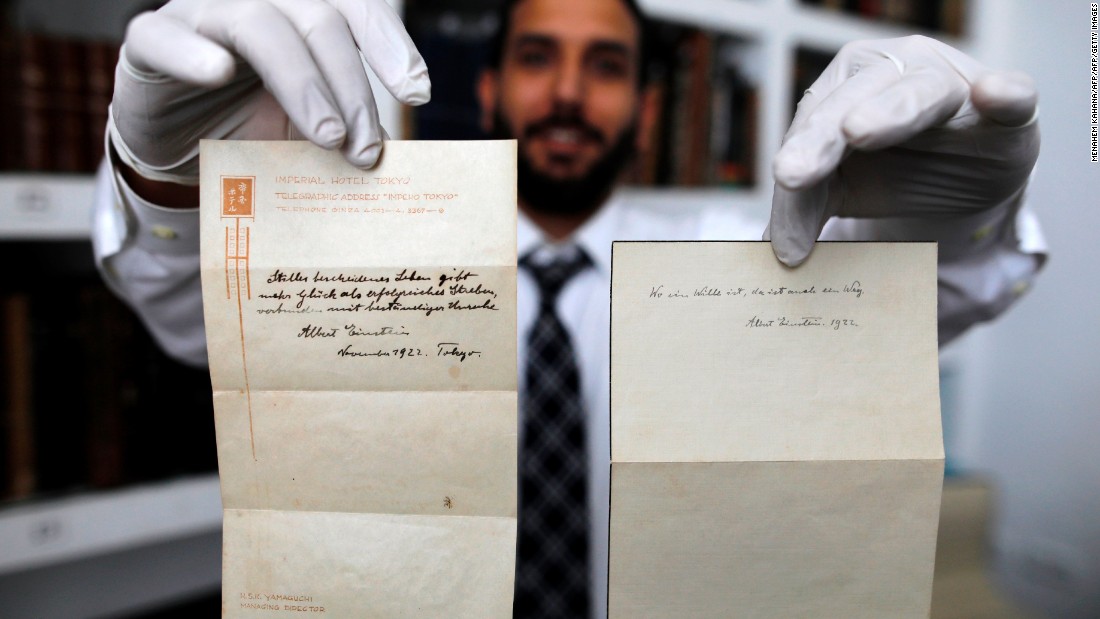 IMPERIAL HOTEL TOKYO
TELEGRAPHIC ADDRESS "IMPEHO TOKYO"
TELEPHONE GINZA
帝国
ホテル
Stilles bescheidenes Leben gibt
mehr Glück als erfolgreiches Streben,
verbunden mit beständiger Unruhe
Albert Einstein
November 1922. Tokyo.
YAMAGUCHI
MANAGING DIRECTOR
Wo ein Wille ist, da ist auch ein Weg.
Albert Einstein. 1922.
MENAHEM KAHANA/AFP/AFP/GETTY IMAGES